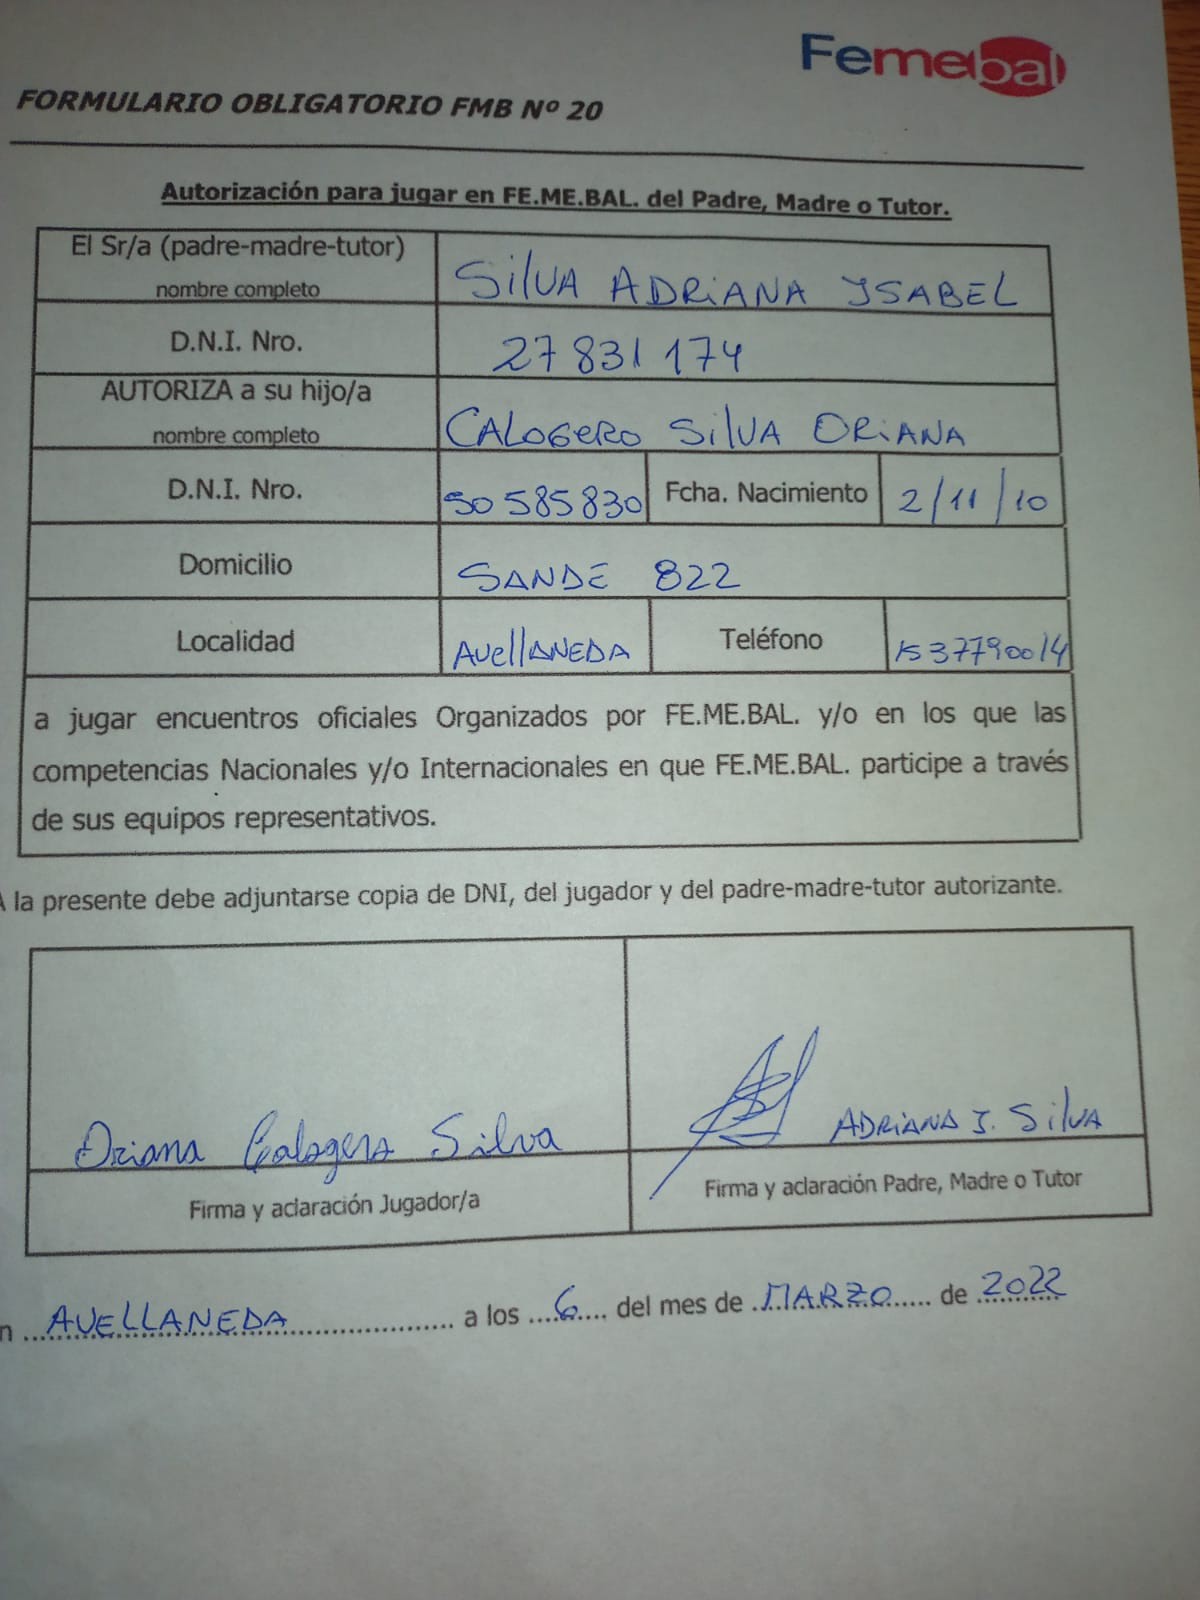 Femebal
FORMULARIO OBLIGATORIO FMB Nº 20
Autorización para jugar en FE.ME.BAL. del Padre, Madre o Tutor.
El Sr/a (padre-madre-tutor)
nombre completo
SilVA ADRiANA YSABEL
D.N.I. Nro.
27 831 174
AUTORIZA a su hijo/a
nombre completo
CALOGERO SilVA ORiANA
D.N.I. Nro.
50 585 830
Fcha. Nacimiento
2/11/10
Domicilio
SANDE 822
Localidad
AvellANEDA
Teléfono
1537790014
a jugar encuentros oficiales Organizados por FE.ME.BAL. y/o en los que las
competencias Nacionales y/o Internacionales en que FE.ME.BAL. participe a través
de sus equipos representativos.
A la presente debe adjuntarse copia de DNI, del jugador y del padre-madre-tutor autorizante.
Oriana Calogero Silva
ADRiANA I. SilVA
Firma y aclaración Jugador/a
Firma y aclaración Padre, Madre o Tutor
n ... AVELLANEDA ... a los ... 6 ... del mes de ... MARZO ... de 2022